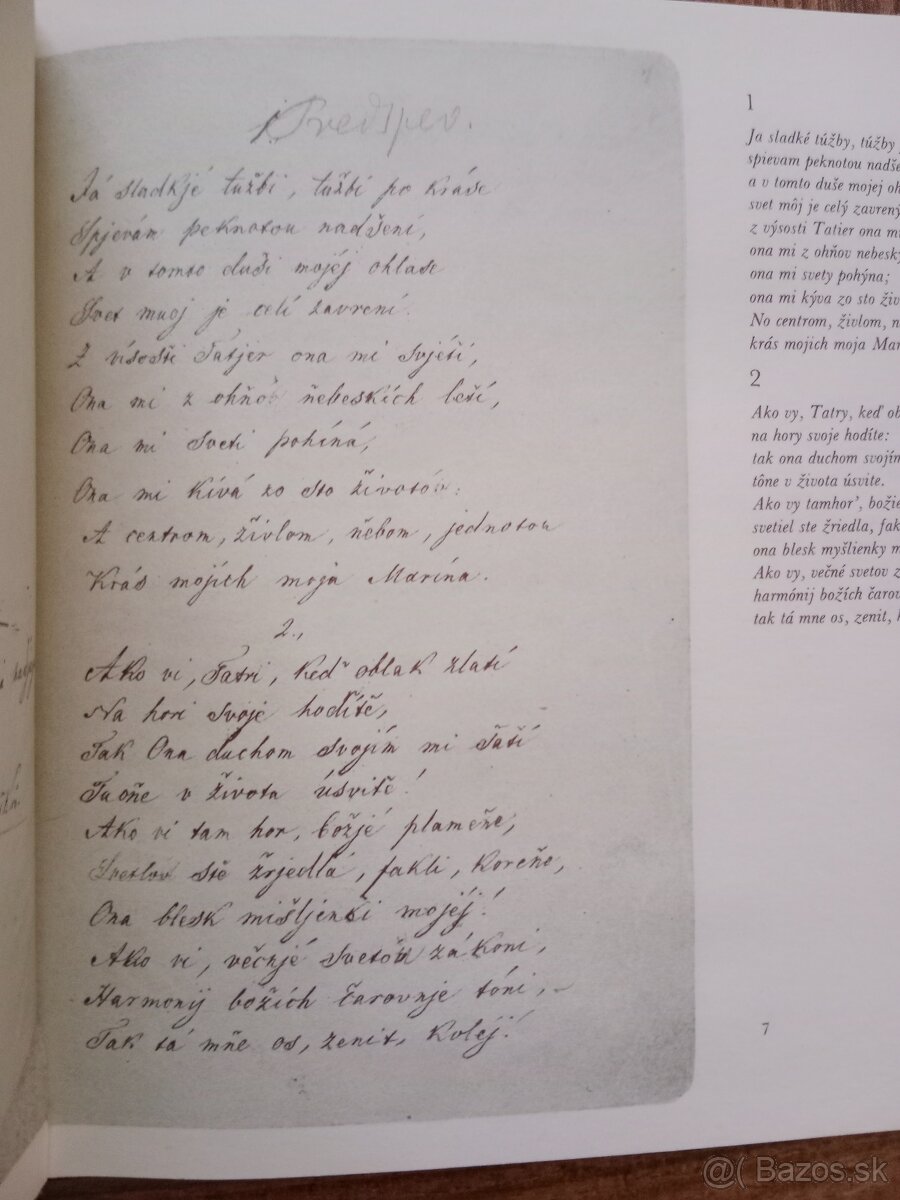 1. Predspev.
Já sladkjé tužbi, tužbi po kráse
Spjevám peknotou nadšení,
A v tomto duši mojéj ohlase
Svet muoj je celí zavrení.
Z visosti Tatjer ona mi svjéti,
Ona mi z ohňov ňebeskích letí,
Ona mi sveti pohíná,
Ona mi kívá zo sto životov:
A centrom, živlom, ňebom, jednotou
Krás mojích moja Marína.
2.,
Ako vi, Tatri, keď oblak zlatí
Na hori svoje hoďíťe,
Tak Ona duchom svojím mi šatí
Tuoňe v života úsviťe!
Ako vi tam hor, božjé plameňe,
Svetlov sťe žrjedlá, fakli, koreňe,
Ona blesk mišljenki mojéj!
Ako vi, věčnjé svetóv zákoni,
Harmonij božích čarovnje tóni,
Tak tá mňe os, zenit, kolej!
1
Ja sladké túžby, túžby
spievam peknotou
a v tomto duše mojej
svet môj je celý
z výsosti Tatier ona
ona mi z ohňov
ona mi svety pohýna;
ona mi kýva zo sto
No centrom, živlom,
krás mojich moja
2
Ako vy, Tatry, keď
na hory svoje hodíte:
tak ona duchom
tône v života úsvite.
Ako vy tamhor',
svetiel ste žriedla,
ona blesk myšlienky
Ako vy, večné svetov
harmónij božích
tak tá mne os, zenit,
7
@( Bazos.sk